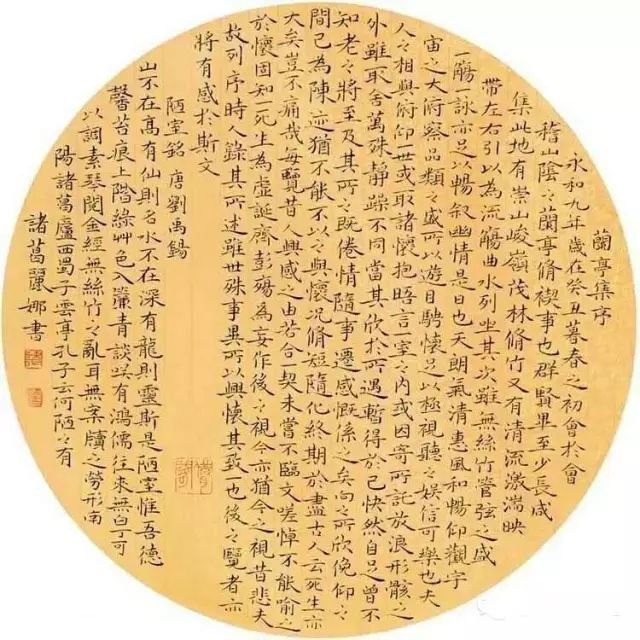 蘭亭集序
永和九年歲在癸丑暮春之初會於會
稽山陰之蘭亭脩禊事也群賢畢至少長咸
集此地有崇山峻嶺茂林脩竹又有清流激湍映
帶左右引以為流觴曲水列坐其次雖無絲竹管弦之盛
一觴一詠亦足以暢敘幽情是日也天朗氣清惠風和暢仰觀宇
宙之大俯察品類之盛所以遊目騁懷足以極視聽之娛信可樂也夫
人之相與俯仰一世或取諸懷抱晤言室之內或因寄所託放浪形骸之
外雖取舍萬殊靜躁不同當其欣於所遇暫得於己快然自足曾不
知老之將至及其所之既倦情隨事遷感慨係之矣向之所欣俛仰之
間已為陳迹猶不能不以之興懷況脩短隨化終期於盡古人云死生亦
大矣豈不痛哉每覽昔人興感之由若合契未嘗不臨文嗟悼不能喻之
於懷固知一死生為虛誕齊彭殤為妄作後之視今亦猶今之視昔悲夫
故列序時人錄其所述雖世殊事異所以興懷其致一也後之覽者亦
將有感於斯文
陋室銘 唐劉禹錫
山不在高有仙則名水不在深有龍則靈斯是陋室惟吾德
馨苔痕上階綠艸色入簾青談笑有鴻儒往來無白丁可
以調素琴閱金經無絲竹之亂耳無案牘之勞形南
陽諸葛廬西蜀子雲亭孔子云何陋之有
諸葛麗娜書